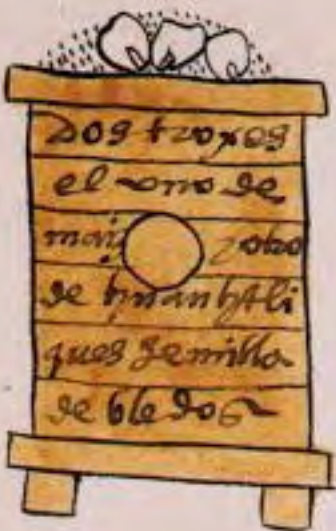 Dos troxes
el uno de
maiz yotro
de huauhtli
ques semilla
de bledos